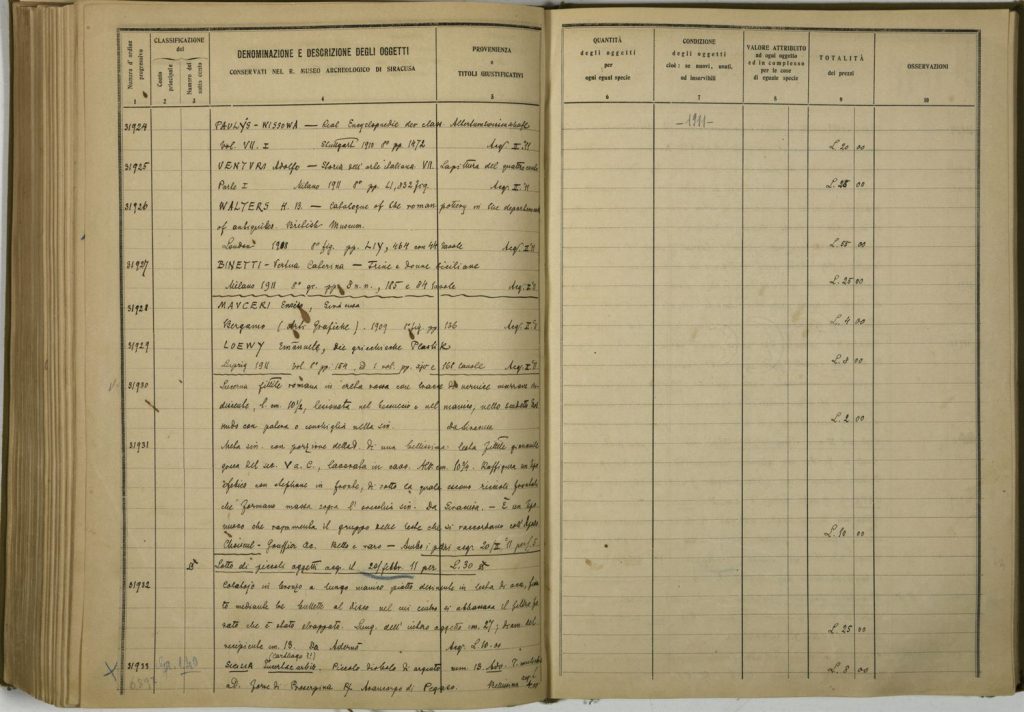 Numero d'ordine progressivo
CLASSIFICAZIONE
del
Conto principale
Numero del sotto conto
DENOMINAZIONE E DESCRIZIONE DEGLI OGGETTI
CONSERVATI NEL R. MUSEO ARCHEOLOGICO DI SIRACUSA
PROVENIENZA
e
TITOLI GIUSTIFICATIVI
1 2 3 4 5
31924 PAULYS - WISSOWA — Real Encyclopaedie der class. Altertumswissenschaft
Vol. VII. I Stuttgart 1910 8° pp. 1472 Acq. II °11
31925 VENTURI Adolfo — Storia dell'arte italiana VII. La pittura del quattrocento
Parte I Milano 1911 8° pp. LI, 832 fig. Acq. II °11
31926 WALTERS H. B. — Catalogue of the roman pottery in the departement
of antiquites. British Museum.
London 1908 8° fig. pp. LIV, 464 con 44 tavole Acq. II °11
31927 BINETTI - Vertua Caterina — Trine e donne siciliane
Milano 1911 8° gr. pp. 8 n. n., 185 e 84 tavole Acq. II °11
31928 MAUCERI Enrico, Siracusa
Bergamo (Arti Grafiche). 1909 8° fig. pp. 136 Acq. II °11
31929 LOEWY Emanuele, Die griechische Plastik
Leipzig 1911 Vol. 8° pp. 154, e 1 vol. pp. e 168 tavole Acq. II °11
31930 Lucerna fittile romana in creta rossa con tracce di vernice marrone
l. cm. 10½, lesionata nel beccuccio e nel manico, nello scudetto
nudo con palma o conchiglia nella sin. Da Siracusa
31931 Metà sin. con porzione della d. di una bellissima testa fittile
greca del sec. V a. C., lavorata in cavo. Alt. cm. 10¾. Raffigura un
con stephane in fronte, di sotto la quale escono riccioli frontali
che formano massa sopra l'orecchia sin. Da Siracusa. — È un
che rammenta il gruppo delle teste che si raccordano coll'Apollo
Choiseul - Gouffier ecc. Bello e raro — Ambo i pezzi acq. 20/II °11 per £. 5
Lotto di piccoli oggetti acq. il 20/febbr. 11 per L. 30
31932 Colatojo in bronzo a lungo manico piatto desinente in testa di oca,
mediante tre bullette al disco nel cui centro si abbassava il filtro
rato che è stato strappato. Lung. dell'intero oggetto cm. 27; diam. del
recipiente cm. 13. Da Adernò Acq. L. 50.00
(Cartilago ?!)
31933 Piccolo diobolo di argento mm. 13.
D. Zorne di Proserpina R/ Avancorpo di Pegaso.
QUANTITÀ
degli oggetti
per
ogni egual specie
CONDIZIONE
degli oggetti
cioè: se nuovi, usati,
od inservibili
VALORE ATTRIBUITO
ad ogni oggetto
ed in complesso
per le cose
di eguale specie
TOTALITÀ
dei prezzi
OSSERVAZIONI
6 7 8 9 10
— 1911 —
L. 20 00
L. 25 00
L. 55 00
L. 25 00
L. 4 00
L. 8 00
L. 2 00
L. 10 00
L. 25 00
L. 8 00